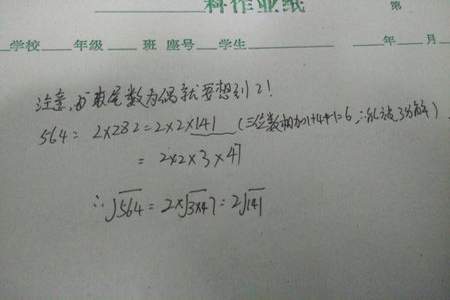 科作业纸
第
学校 年级 班 座号 学生 年 月
注意,数尾数为偶就要想到2!
564 = 2×282 = 2×2×141 (三位数相加1+4+1=6,∴能被3分解)
= 2×2×3×47
∴√564 = 2×√3×47 = 2√141